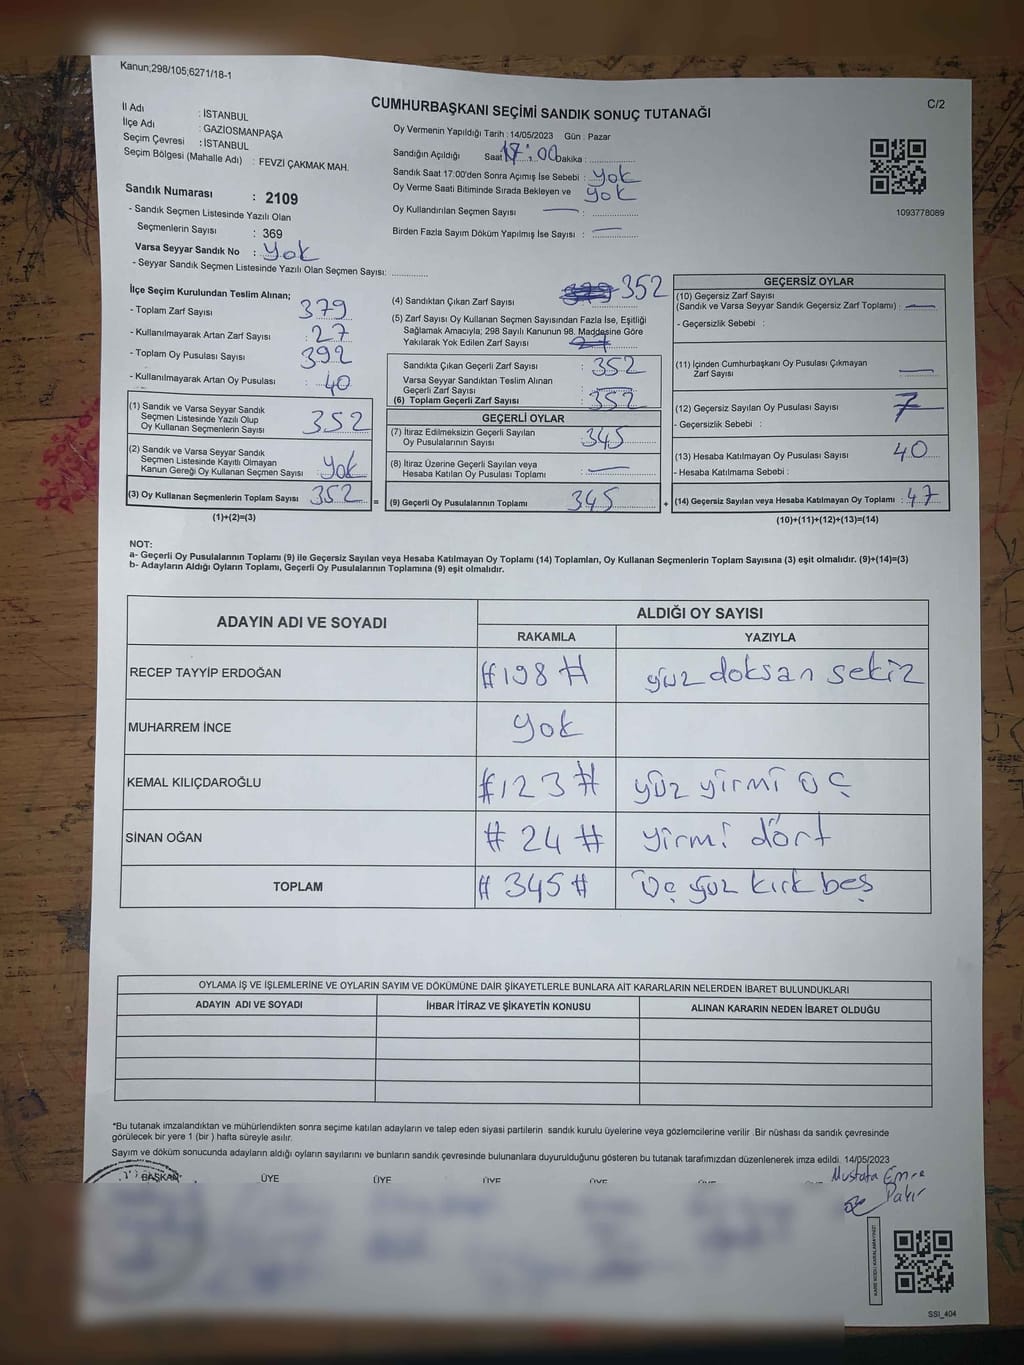 Kanun;298/105;6271/18-1
CUMHURBAŞKANI SEÇİMİ SANDIK SONUÇ TUTANAĞI
C/2
İl Adı : İSTANBUL
İlçe Adı : GAZİOSMANPAŞA
Seçim Çevresi : İSTANBUL
Seçim Bölgesi (Mahalle Adı) : FEVZİ ÇAKMAK MAH.
Sandık Numarası : 2109
- Sandık Seçmen Listesinde Yazılı Olan
Seçmenlerin Sayısı : 369
Varsa Seyyar Sandık No : yok
- Seyyar Sandık Seçmen Listesinde Yazılı Olan Seçmen Sayısı: ............
Oy Vermenin Yapıldığı Tarih : 14/05/2023 Gün : Pazar
Sandığın Açıldığı Saat 17:00 Dakika : ............
Sandık Saat 17.00'den Sonra Açımış İse Sebebi : yok
Oy Verme Saati Bitiminde Sırada Bekleyen ve yok
Oy Kullandırılan Seçmen Sayısı — : ............
Birden Fazla Sayım Döküm Yapılmış İse Sayısı : —
1093778089
İlçe Seçim Kurulundan Teslim Alınan;
- Toplam Zarf Sayısı 379
- Kullanılmayarak Artan Zarf Sayısı : 27
- Toplam Oy Pusulası Sayısı 392
- Kullanılmayarak Artan Oy Pusulası : 40
(1) Sandık ve Varsa Seyyar Sandık
Seçmen Listesinde Yazılı Olup
Oy Kullanan Seçmenlerin Sayısı 352
(2) Sandık ve Varsa Seyyar Sandık
Seçmen Listesinde Kayıtlı Olmayan
Kanun Gereği Oy Kullanan Seçmen Sayısı yok
(3) Oy Kullanan Seçmenlerin Toplam Sayısı 352 =
(1)+(2)=(3)
(4) Sandıktan Çıkan Zarf Sayısı 352
(5) Zarf Sayısı Oy Kullanan Seçmen Sayısından Fazla İse, Eşitliği
Sağlamak Amacıyla; 298 Sayılı Kanunun 98. Maddesine Göre
Yakılarak Yok Edilen Zarf Sayısı
Sandıkta Çıkan Geçerli Zarf Sayısı : 352
Varsa Seyyar Sandıktan Teslim Alınan
Geçerli Zarf Sayısı
(6) Toplam Geçerli Zarf Sayısı : 352
GEÇERLİ OYLAR
(7) İtiraz Edilmeksizin Geçerli Sayılan
Oy Pusulalarının Sayısı 345
(8) İtiraz Üzerine Geçerli Sayılan veya
Hesaba Katılan Oy Pusulası Toplamı : —
(9) Geçerli Oy Pusulalarının Toplamı 345 +
GEÇERSİZ OYLAR
(10) Geçersiz Zarf Sayısı
(Sandık ve Varsa Seyyar Sandık Geçersiz Zarf Toplamı) : —
- Geçersizlik Sebebi :
(11) İçinden Cumhurbaşkanı Oy Pusulası Çıkmayan
Zarf Sayısı —
(12) Geçersiz Sayılan Oy Pusulası Sayısı 7
- Geçersizlik Sebebi :
(13) Hesaba Katılmayan Oy Pusulası Sayısı 40
- Hesaba Katılmama Sebebi :
(14) Geçersiz Sayılan veya Hesaba Katılmayan Oy Toplamı : 47
(10)+(11)+(12)+(13)=(14)
NOT:
a- Geçerli Oy Pusulalarının Toplamı (9) ile Geçersiz Sayılan veya Hesaba Katılmayan Oy Toplamı (14) Toplamları, Oy Kullanan Seçmenlerin Toplam Sayısına (3) eşit olmalıdır. (9)+(14)=(3)
b- Adayların Aldığı Oyların Toplamı, Geçerli Oy Pusulalarının Toplamına (9) eşit olmalıdır.
ADAYIN ADI VE SOYADI
ALDIĞI OY SAYISI
RAKAMLA YAZIYLA
RECEP TAYYİP ERDOĞAN #198# yüz doksan sekiz
MUHARREM İNCE yok
KEMAL KILIÇDAROĞLU #123# yüz yirmi üç
SİNAN OĞAN #24# yirmi dört
TOPLAM #345# üç yüz kırk beş
OYLAMA İŞ VE İŞLEMLERİNE VE OYLARIN SAYIM VE DÖKÜMÜNE DAİR ŞİKAYETLERLE BUNLARA AİT KARARLARIN NELERDEN İBARET BULUNDUKLARI
ADAYIN ADI VE SOYADI İHBAR İTİRAZ VE ŞİKAYETİN KONUSU ALINAN KARARIN NEDEN İBARET OLDUĞU
*Bu tutanak imzalandıktan ve mühürlendikten sonra seçime katılan adayların ve talep eden siyasi partilerin sandık kurulu üyelerine veya gözlemcilerine verilir. Bir nüshası da sandık çevresinde
görülecek bir yere 1 (bir ) hafta süreyle asılır.
Sayım ve döküm sonucunda adayların aldığı oyların sayılarını ve bunların sandık çevresinde bulunanlara duyurulduğunu gösteren bu tutanak tarafımızdan düzenlenerek imza edildi. 14/05/2023
BAŞKAN ÜYE ÜYE ÜYE ÜYE
Mustafa Emre
Pakır
SSI_404